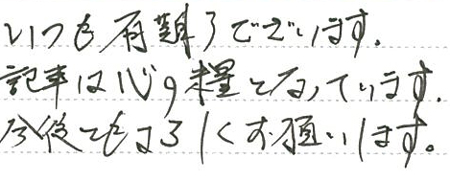 いつも有難うございます。
記事は心の糧となっています。
今後ともよろしくお願いします。